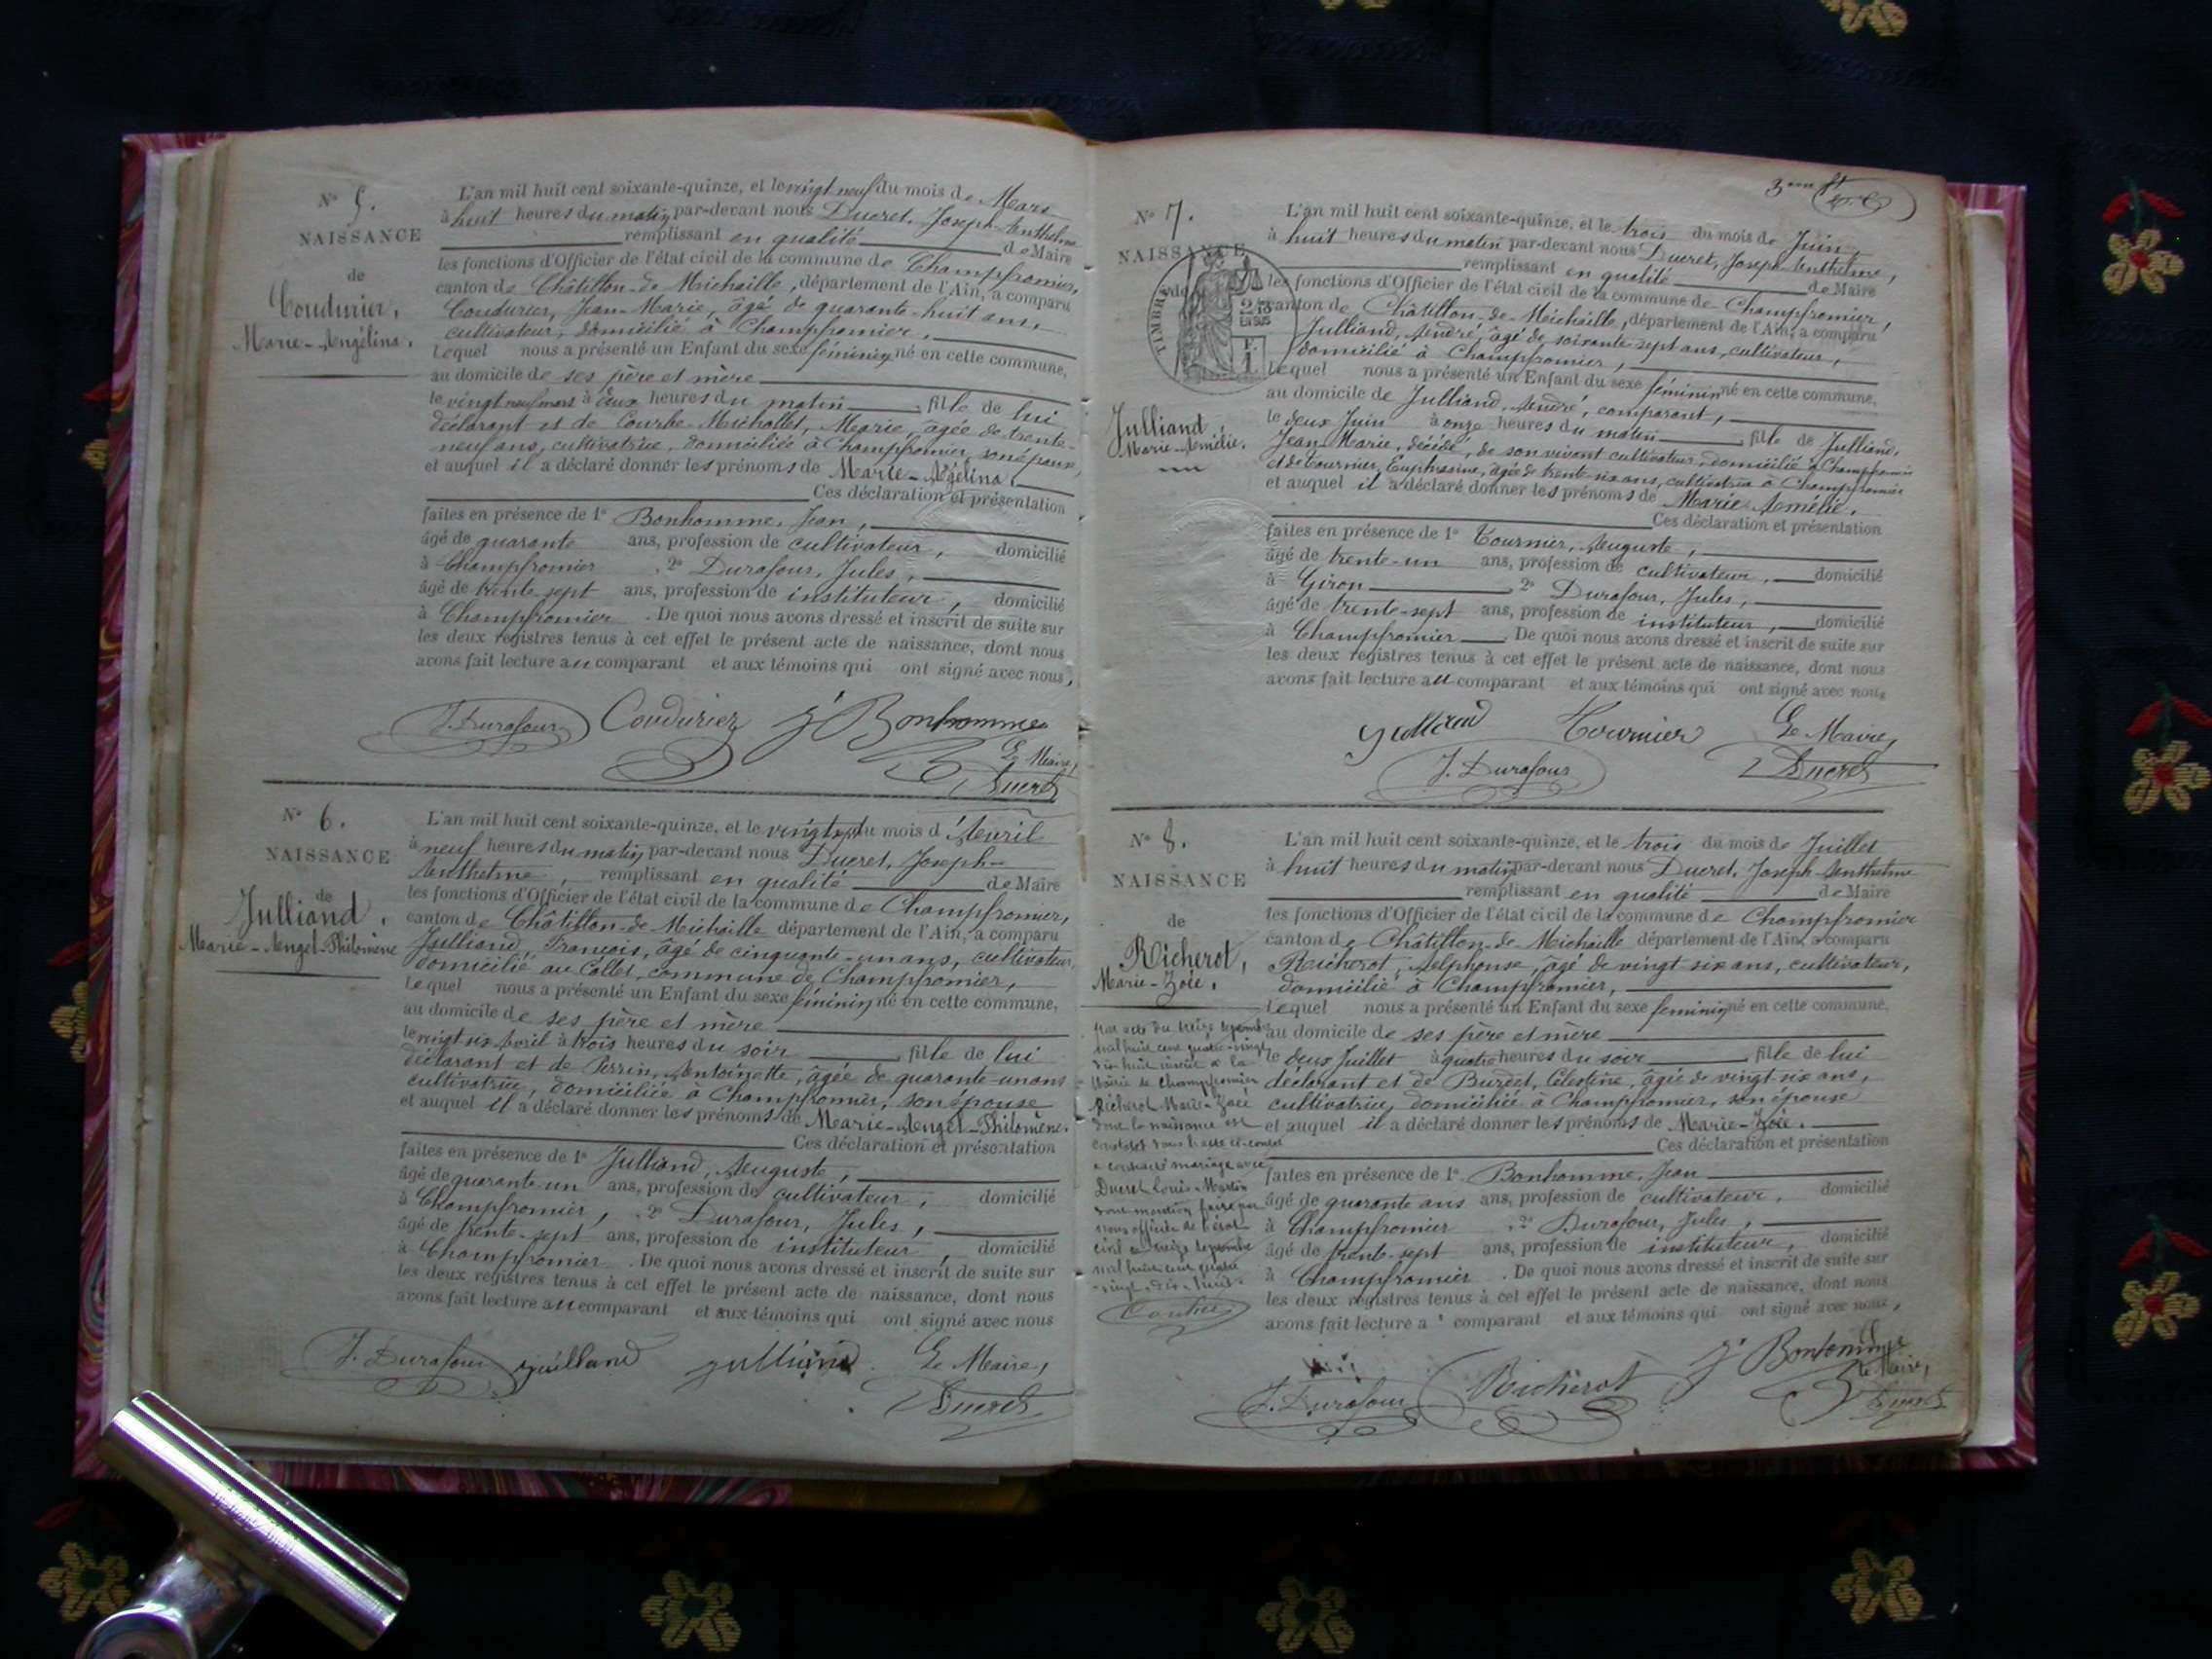 N° 5.
NAISSANCE
de
Coudurier,
Marie-Angélina.
L'an mil huit cent soixante-quinze, et le vingt neuf du mois de Mars
à huit heures du matin par-devant nous Ducret, Joseph-Anthelme
remplissant en qualité de Maire
les fonctions d'Officier de l'état civil de la commune de Champfromier,
canton de Châtillon-de-Michaille, département de l'Ain, a comparu
Coudurier, Jean-Marie, âgé de quarante-huit ans,
cultivateur, domicilié à Champfromier,
Lequel nous a présenté un Enfant du sexe féminin né en cette commune,
au domicile de ses père et mère
le vingt neuf mars à deux heures du matin, fille de lui
déclarant et de Courbe-Michollet, Marie, âgée de trente-
neuf ans, cultivatrice, domiciliée à Champfromier, son épouse,
et auquel il a déclaré donner les prénoms de Marie-Agélina.
Ces déclaration et présentation
faites en présence de 1° Bonhomme, Jean,
âgé de quarante ans, profession de cultivateur, domicilié
à Champfromier, 2° Durafour, Jules,
âgé de trente sept ans, profession de instituteur, domicilié
à Champfromier. De quoi nous avons dressé et inscrit de suite sur
les deux registres tenus à cet effet le présent acte de naissance, dont nous
avons fait lecture au comparant et aux témoins qui ont signé avec nous,
J. Durafour Coudurier J Bonhomme
Le Maire,
Ducret
N° 6.
NAISSANCE
de
Julliand,
Marie-Angel-Philomène
L'an mil huit cent soixante-quinze, et le vingt sept du mois d'Avril
à neuf heures du matin par-devant nous Ducret, Joseph-
Anthelme, remplissant en qualité de Maire
les fonctions d'Officier de l'état civil de la commune de Champfromier,
canton de Châtillon-de-Michaille département de l'Ain, a comparu
Julliand, François, âgé de cinquante-un ans, cultivateur,
domicilié au Collet, commune de Champfromier,
Lequel nous a présenté un Enfant du sexe féminin né en cette commune,
au domicile de ses père et mère
le vingt-six Avril à trois heures du soir, fille de lui
déclarant et de Perrin, Antoinette, âgée de quarante-un ans
cultivatrice, domiciliée à Champfromier, son épouse
et auquel il a déclaré donner les prénoms de Marie-Angel-Philomène.
Ces déclaration et présentation
faites en présence de 1° Julliand, Auguste,
âgé de quarante-un ans, profession de cultivateur, domicilié
à Champfromier, 2° Durafour, Jules,
âgé de trente-sept ans, profession de instituteur, domicilié
à Champfromier. De quoi nous avons dressé et inscrit de suite sur
les deux registres tenus à cet effet le présent acte de naissance, dont nous
avons fait lecture au comparant et aux témoins qui ont signé avec nous
J. Durafour Julliand Julliand Le Maire,
Ducret
N° 7.
NAISSANCE
de
TIMBRE
Julliand,
Marie-Amélie.
L'an mil huit cent soixante-quinze, et le trois du mois de Juin
à huit heures du matin par-devant nous Ducret, Joseph-Anthelme,
remplissant en qualité de Maire
les fonctions d'Officier de l'état civil de la commune de Champfromier,
canton de Châtillon-de-Michaille, département de l'Ain, a comparu
Julliand, André, âgé de soixante-sept ans, cultivateur,
domicilié à Champfromier,
Lequel nous a présenté un Enfant du sexe féminin né en cette commune,
au domicile de Julliand, André, comparant,
le deux Juin à onze heures du matin, fille de Julliand,
Jean Marie, décédé, de son vivant cultivateur, domicilié à Champfromier
et de Tournier, Euphrasine, âgée de trente-six ans, cultivatrice à Champfromier
et auquel il a déclaré donner les prénoms de Marie Amélie.
Ces déclaration et présentation
faites en présence de 1° Tournier, Auguste,
âgé de trente-un ans, profession de cultivateur, domicilié
à Giron 2° Durafour, Jules,
âgé de trente-sept ans, profession de instituteur, domicilié
à Champfromier. De quoi nous avons dressé et inscrit de suite sur
les deux registres tenus à cet effet le présent acte de naissance, dont nous
avons fait lecture au comparant et aux témoins qui ont signé avec nous
Julliand Tournier Le Maire,
J. Durafour Ducret
N° 8.
NAISSANCE
de
Richerot,
Marie-Zoée.
par acte du treize septembre
mil huit cent quatre-vingt
dix huit inscrit à la
Mairie de Champfromier
Richerot Marie-Zoée
dont la naissance est
constatée dans l'acte ci-contre
a contracté mariage avec
Ducret Louis-Martin
dont mention faite par
nous officier de l'état
civil le treize septembre
mil huit cent quatre
-vingt-dix-huit.
L'an mil huit cent soixante-quinze, et le trois du mois de Juillet
à huit heures du matin par-devant nous Ducret, Joseph-Anthelme
remplissant en qualité de Maire
les fonctions d'Officier de l'état civil de la commune de Champfromier
canton de Châtillon-de-Michaille département de l'Ain, a comparu
Richerot, Alphonse, âgé de vingt-six ans, cultivateur,
domicilié à Champfromier,
Lequel nous a présenté un Enfant du sexe féminin né en cette commune,
au domicile de ses père et mère
le deux Juillet à quatre heures du soir, fille de lui
déclarant et de Burdet, Célestine, âgée de vingt-six ans,
cultivatrice, domiciliée à Champfromier, son épouse
et auquel il a déclaré donner les prénoms de Marie-Zoée.
Ces déclaration et présentation
faites en présence de 1° Bonhomme, Jean
âgé de quarante ans ans, profession de cultivateur, domicilié
à Champfromier, 2° Durafour, Jules,
âgé de trente-sept ans, profession de instituteur, domicilié
à Champfromier. De quoi nous avons dressé et inscrit de suite sur
les deux registres tenus à cet effet le présent acte de naissance, dont nous
avons fait lecture a comparant et aux témoins qui ont signé avec nous,
J. Durafour Richerot J Bonhomme
Le Maire,
Ducret